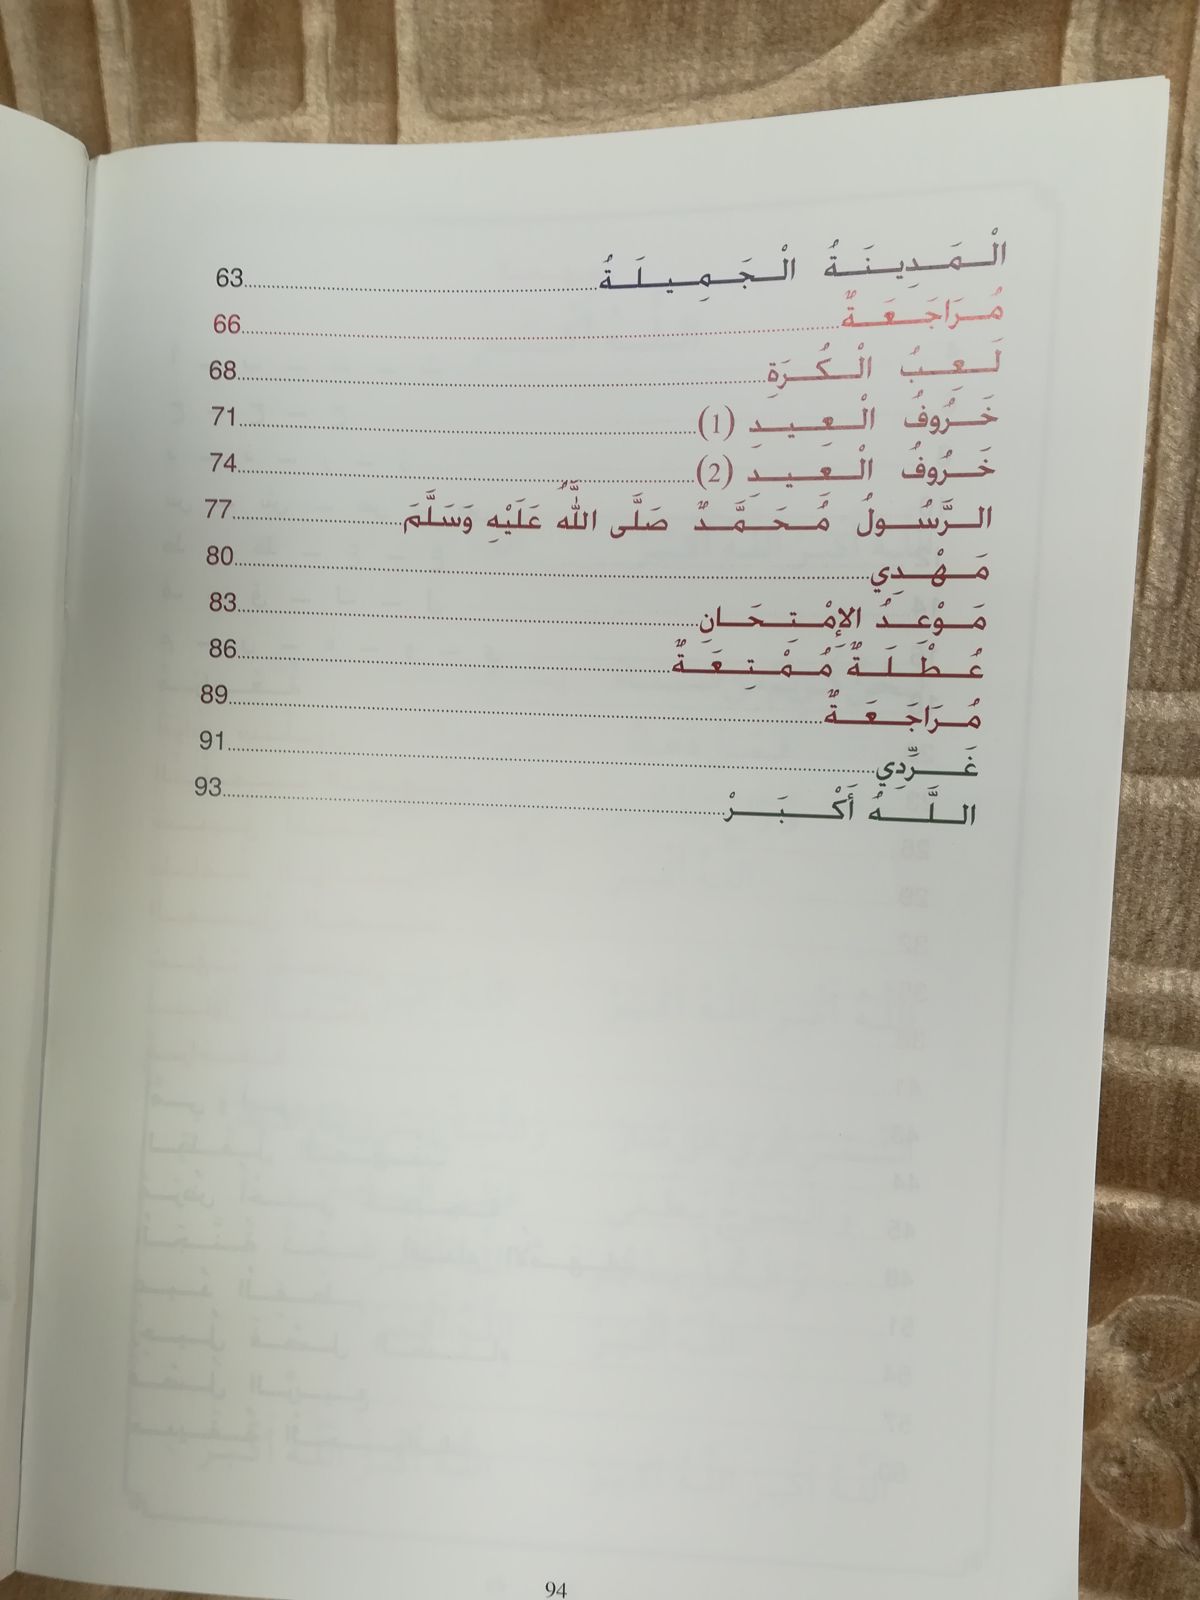 الْمَدِينَةُ الْجَمِيلَةُ 63
مُرَاجَعَةٌ 66
لَعِبُ الْكُرَةِ 68
خَرُوفُ الْعِيدِ (1) 71
خَرُوفُ الْعِيدِ (2) 74
الرَّسُولُ مُحَمَّدٌ صَلَّى اللَّهُ عَلَيْهِ وَسَلَّمَ 77
مَهْدِي 80
مَوْعِدُ الإِمْتِحَانِ 83
عُطْلَةٌ مُمْتِعَةٌ 86
مُرَاجَعَةٌ 89
غَرِّدِي 91
اللَّهُ أَكْبَرْ 93
94